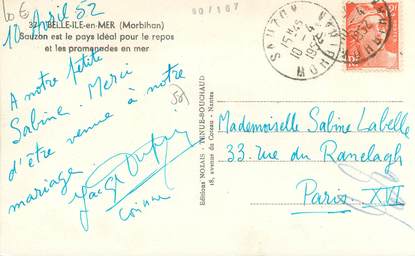 10 Avril 52
BELLE-ILE-en-MER (Morbihan)
Sauzon est le pays idéal pour le repos
et les promenades en mer
A notre petite
Sabine. Merci
d'être venue à notre
mariage
Editions NOZAIS - TENUE-BOUCHAUD
18, avenue de Carthagène, Nantes
SAUZON MORBIHAN
1952
Mademoiselle Sabine Labelle
33. rue du Ranelagh
Paris XVI